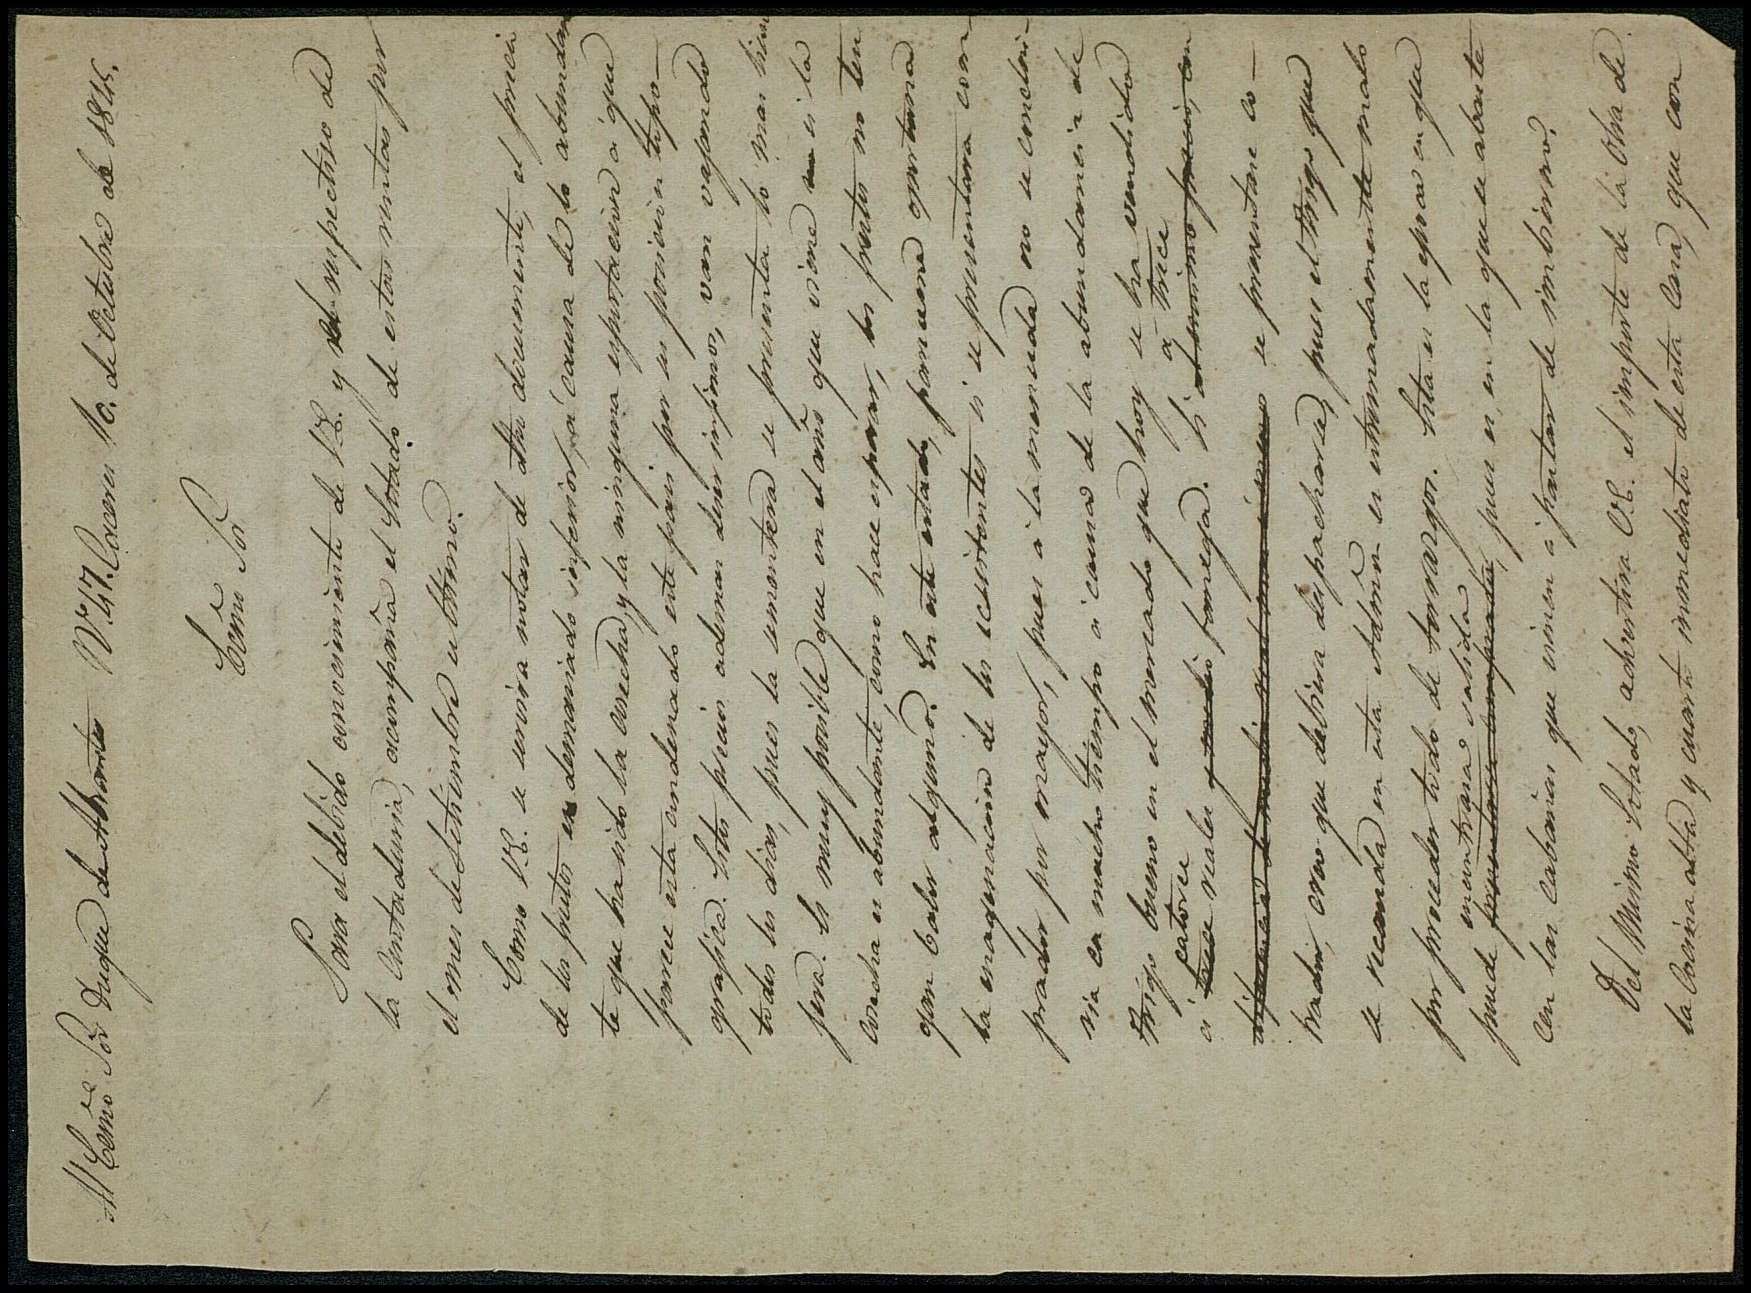 Al Excmo Sor Duque de Abrantes Nº 47. Caceres 10. de Octubre de 1845.
Excmo Sor
Para el debido conocimiento de V.E. y el respectivo de
la Contaduria, acompaña el Estado de estas rentas por
el mes de Setiembre ultimo.
Como V.E. se servira notar de otro documento, el precio
de los frutos es demasiado inferior, á causa de lo abundan
te que ha sido la cosecha y la ninguna esportacion á que
parece esta condenado este pais por su posicion topo-
grafica. Estos precios ademas de ser infimos, van vajando
todos los dias, pues la sementera se presenta lo mas pros
pera. Es muy posible que en el año que viene si la
cosecha es abundante, como hace esperar, los frutos no ten
gan valor alguno. En este estado, parece oportuna
la enagenacion de los ecsistentes si se presentara com
prador por mayor, pues a la menuda no se concluí-
ria en mucho tiempo á causa de la abundancia de
trigo bueno en el mercado que hoy se ha vendido
catorce á trece
á trece reales y medio fanega. Si al mismo precio, con
diferencia de medio real mas ó menos se presentase co-
prador, creo que debiera despacharse, pues el trigo que
se recauda en esta Admon es estremadamente malo
por proceder todo de terrazgos. Esta es la epoca en que
encontrara salida
puede pues es en la que se abaste
cen las cabañas que vienen á pastar de imbierno.
Del mismo Estado, advertira V.E. el importe de la obra de
la Cocina alta y cuarto inmediato de esta Casa, que con